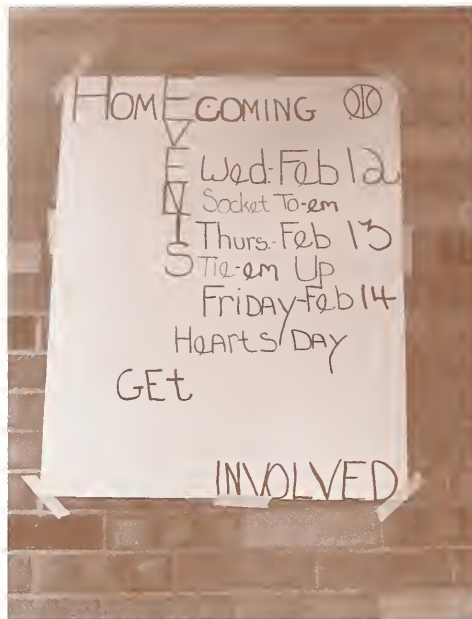 HOMECOMING
EVENTS
Wed-Feb 12
Socket To-em
Thurs-Feb 13
Tie-em Up
FRIDAY-Feb 14
HeARTS DAY
GEt
INVOLVED